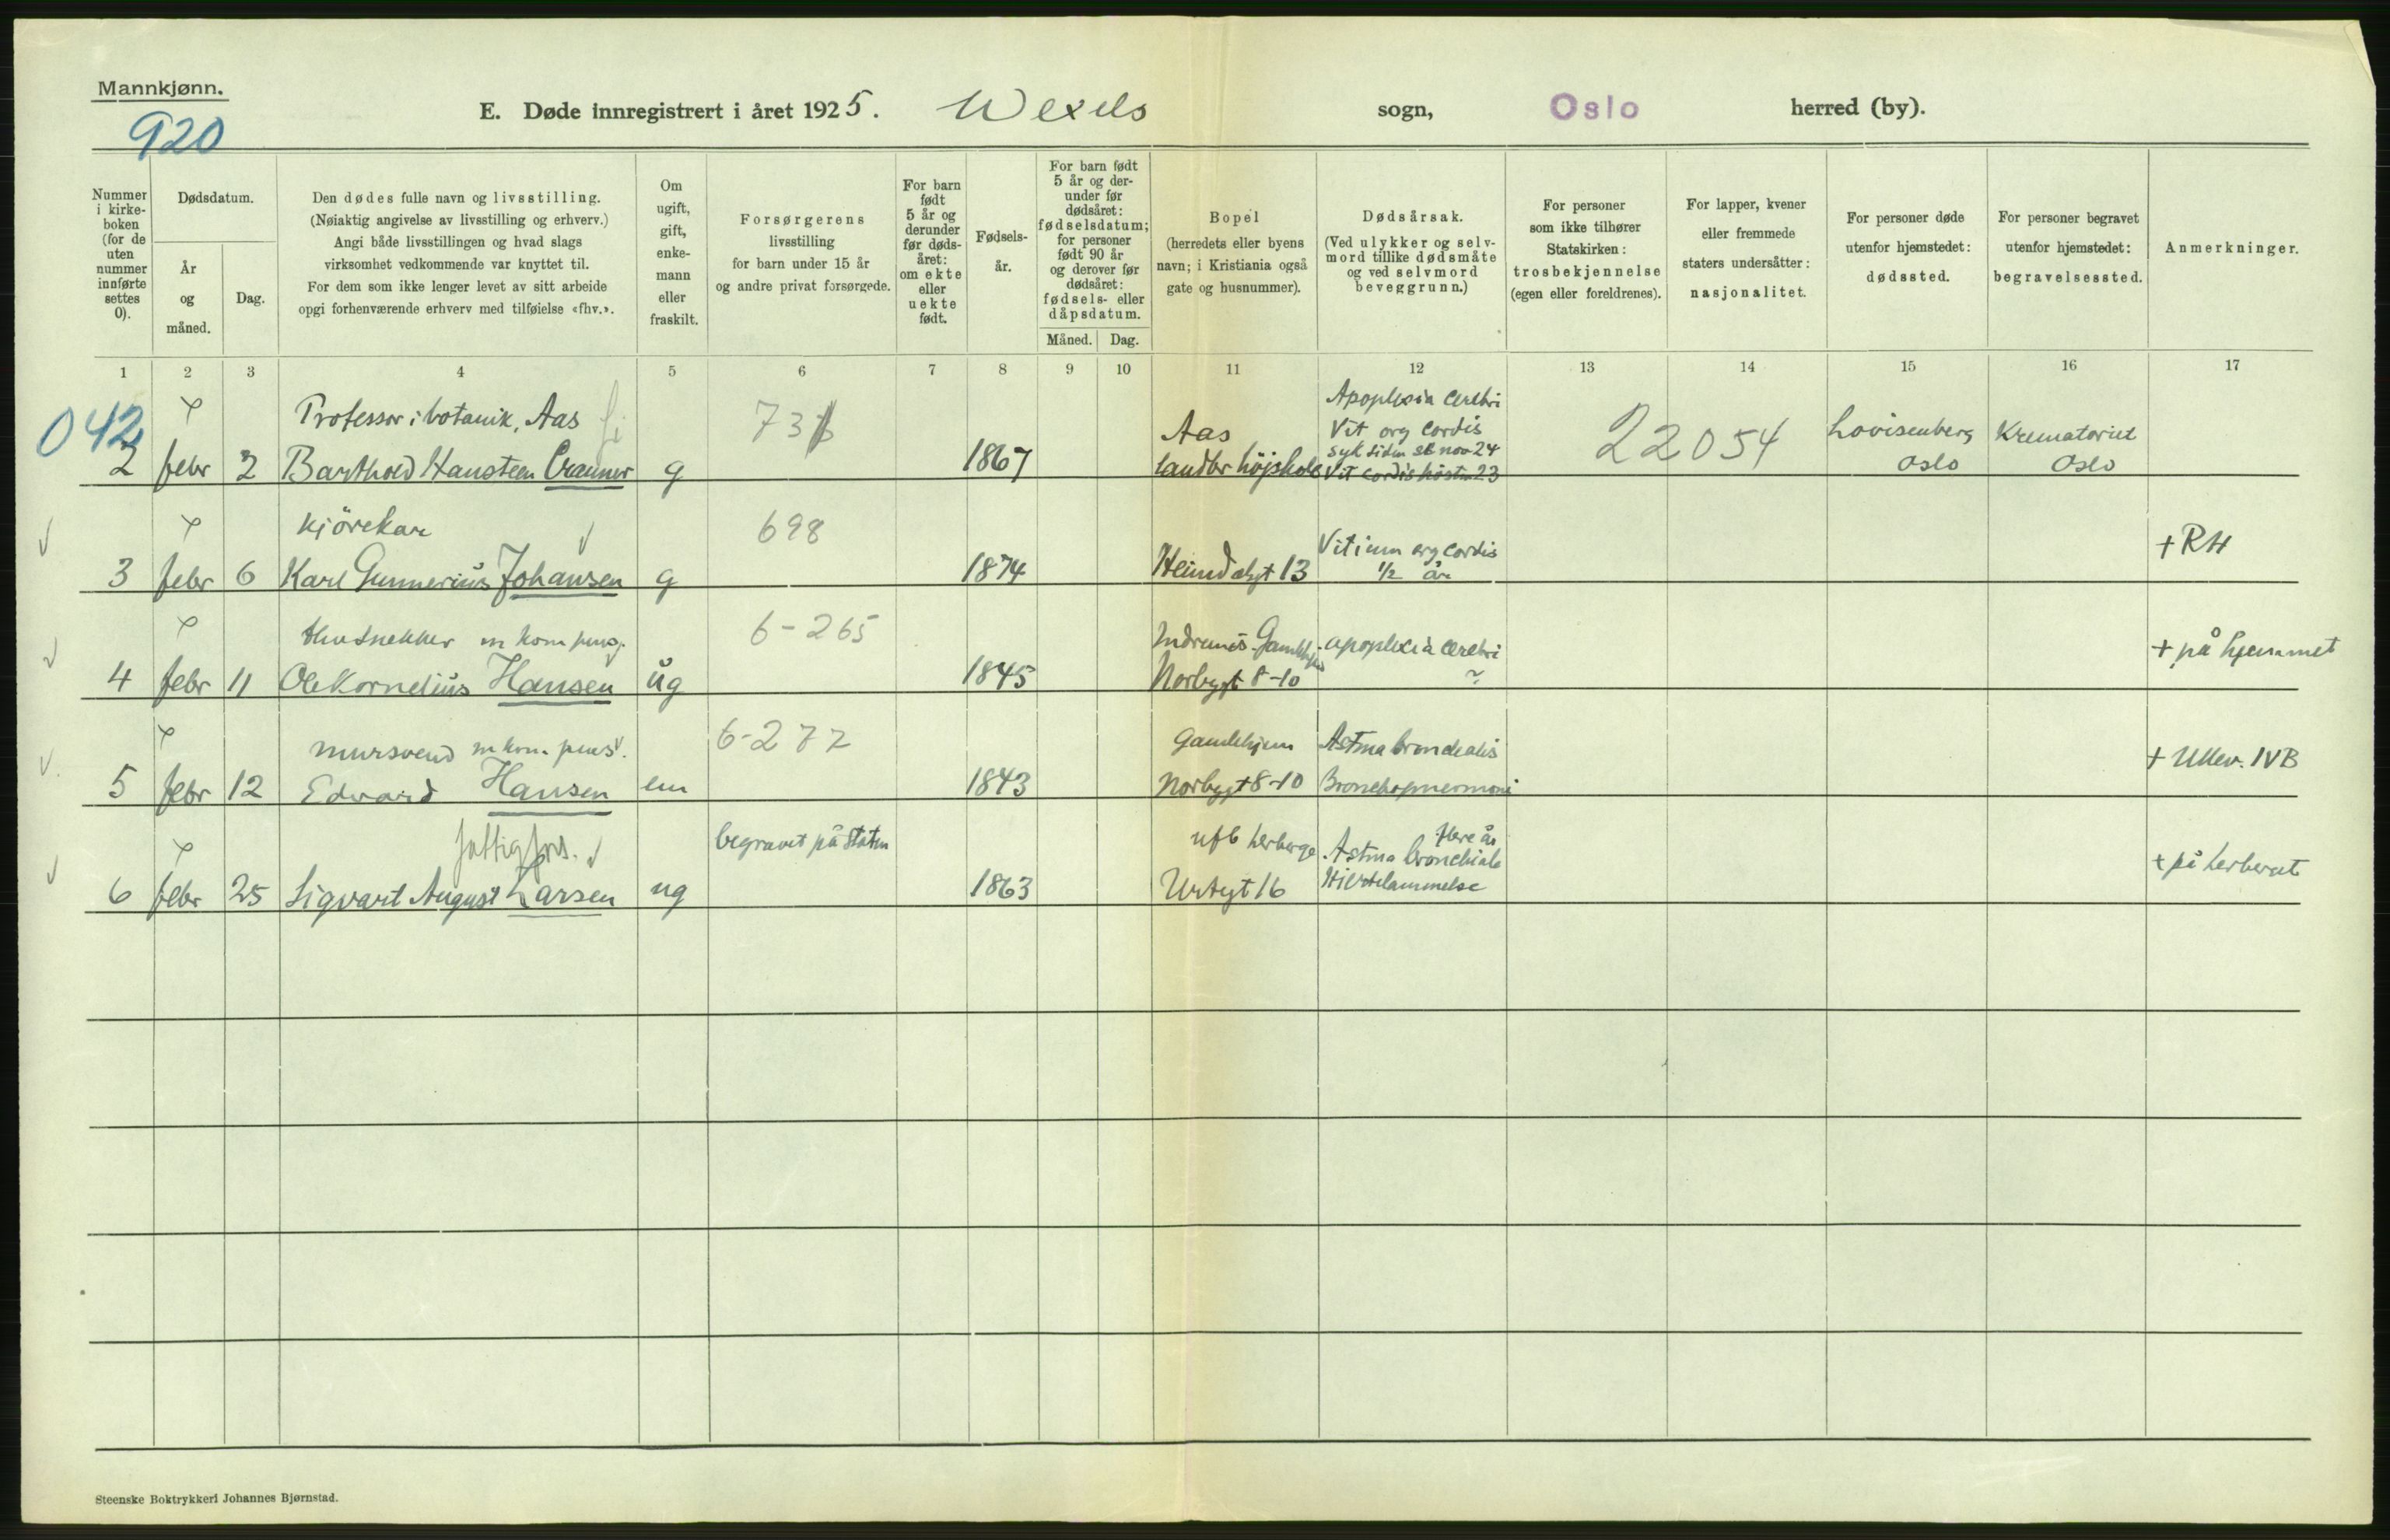 Mannkjønn.
920
E. Døde innregistrert i året 1925. Wexels sogn, Oslo herred (by).
Nummer i kirke-boken (for de uten nummer innførte settes 0).
Dødsdatum.
År og måned.
Dag.
Den dødes fulle navn og livsstilling.
(Nøiaktig angivelse av livsstilling og erhverv.)
Angi både livsstillingen og hvad slags
virksomhet vedkommende var knyttet til.
For dem som ikke lenger levet av sitt arbeide
opgi forhenværende erhverv med tilføielse «fhv.».
Om ugift, gift, enke-mann eller fraskilt.
Forsørgerens
livsstilling
for barn under 15 år
og andre privat forsørgede.
For barn født 5 år og derunder før døds-året: om ekte eller uekte født.
Fødsels-år.
For barn født 5 år og der-under før dødsåret: fødselsdatum; for personer født 90 år og derover før dødsåret: fødsels- eller dåpsdatum.
Måned. Dag.
Bopel
(herredets eller byens
navn; i Kristiania også
gate og husnummer).
Dødsårsak.
(Ved ulykker og selv-
mord tillike dødsmåte
og ved selvmord
beveggrunn.)
For personer
som ikke tilhører
Statskirken:
trosbekjennelse
(egen eller foreldrenes).
For lapper, kvener
eller fremmede
staters undersåtter:
nasjonalitet.
For personer døde
utenfor hjemstedet:
dødssted.
For personer begravet
utenfor hjemstedet:
begravelsessted.
Anmerkninger.
1 2 3 4 5 6 7 8 9 10 11 12 13 14 15 16 17
042
Professor i botanik, Aas
73
Aas
Apoplexia cerebri
Vit org cordis
syk siden nov 24
22054
Lovisenberg
Krematoriet
2 febr 2 Barthold Hansteen Cranner g 1867 landbr højskole Vit cordis høsten 23 Oslo Oslo
kjörekar
698
Vitium org cordis
+ RH
3 febr 6 Karl Gunnerius Johansen g 1874 Heimdalsgt 13 1/2 år
m kom pens.
6-265
Indremis. Gamlehjem
apoplexia cerebri
+ på hjemmet
4 febr 11 Ole Kornelius Hansen ug 1845 Norbygt 8-10 ?
mursvend m kom. pens.
6-277
Gamlehjem
Astma bronchialis
+ Ullev. IVB
5 febr 12 Edvard Hansen em 1843 Norbygt 8-10 Bronchopneumoni
fattigfors.
begravet på Staten
herberge
flere år
Astma bronchiale
+ på herberget
6 febr 25 Sigvart August Larsen ug 1863 Urtegt 16 Hjertelammelse
Steenske Boktrykkeri Johannes Bjørnstad.